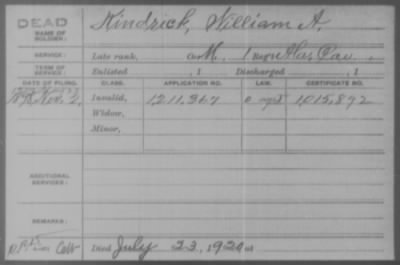 DEAD
NAME OF SOLDIER: Kindrick, William A.
SERVICE: Late rank, Co. M, 1 Reg't Ala. Cav.
TERM OF SERVICE: Enlisted , 1 Discharged , 1
DATE OF FILING. CLASS. APPLICATION NO. LAW. CERTIFICATE NO.
Nov. 2, Invalid, 1211,367 1,015,892
Widow,
Minor,
ADDITIONAL SERVICES:
REMARKS:
Died July 23, 1920 at